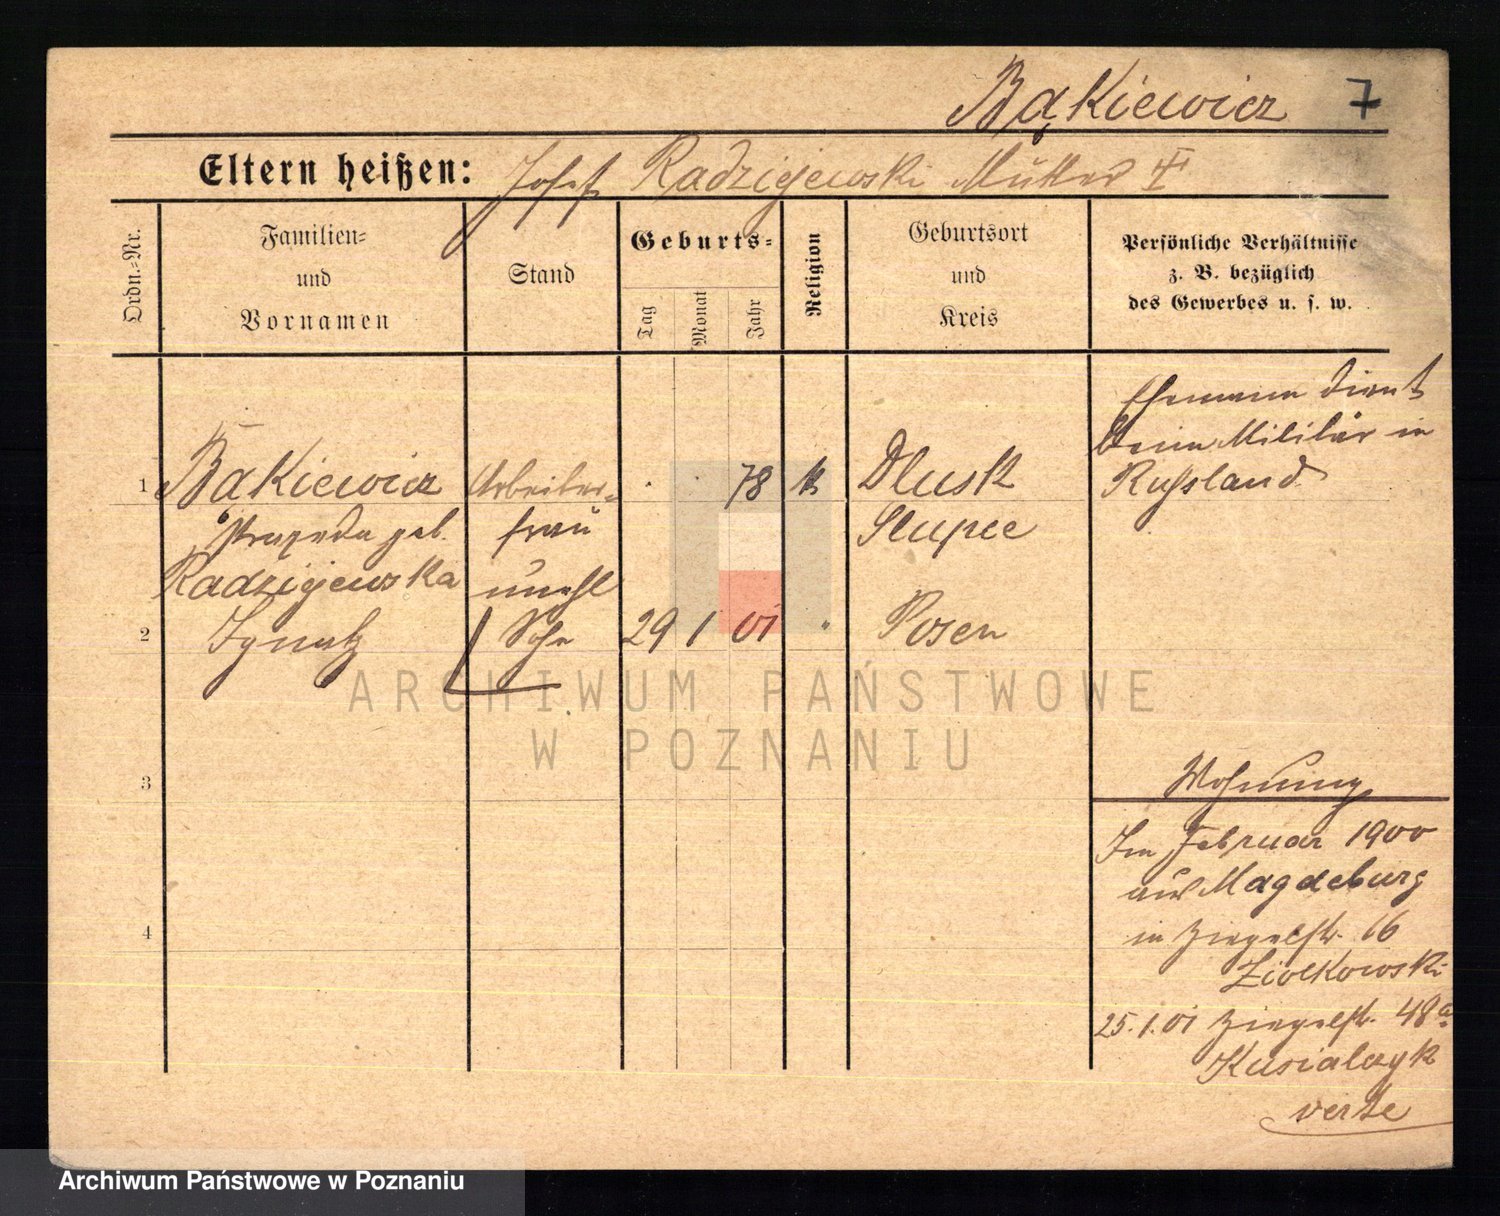 Bąkiewicz 7
Eltern heißen: Josef Radzijewski Mutter †
Ordn.-Nr.
Familien-
und
Vornamen
Stand
Geburts-
Tag
Monat
Jahr
Religion
Geburtsort
und
Kreis
Persönliche Verhältnisse
z. B. bezüglich
des Gewerbes u. s. w.
Ehemann dient
beim Militär in
Russland
1 Bąkiewicz Arbeiter- 78 k Dlusk
Praxeda geb. frau Slupce
Radzijewska unehl
2 Ignatz Sohn 29 1 01 " Posen
3
4
Wohnung
Im Februar 1900
aus Magdeburg
in Ziegelstr. 16
Ziolkowski
25.1.01 Ziegelstr. 48a
Kusialczyk
verte
ARCHIWUM PAŃSTWOWE
W POZNANIU
Archiwum Państwowe w Poznaniu